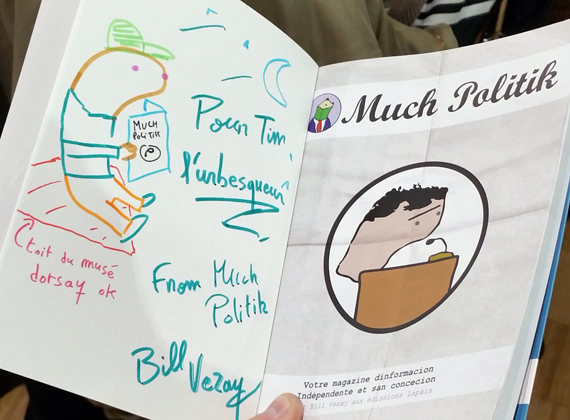 MUCH
POLITIK
P
Pour Tim
l'urbesqueur
toit du musé
dorsay ok
From Much
Politik
Bill Vezay
Much Politik
Votre magazine dinformacion
Indépendente et san concecion
Bill Vezay aux édissions Lapain